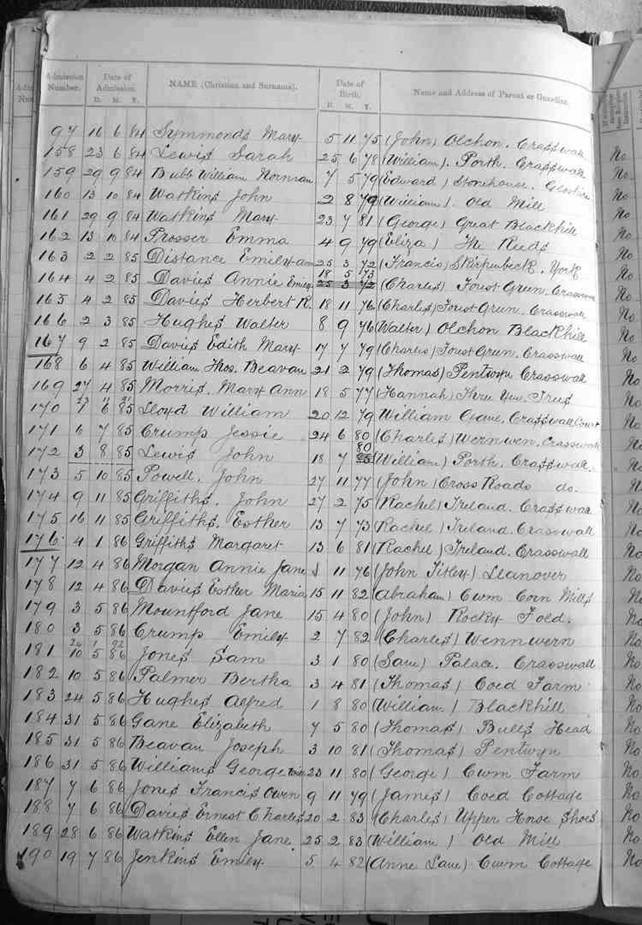 Admission Number. Date of Admission. D. M. Y. NAME (Christian and Surname). Date of Birth. D. M. Y. Name and Address of Parent or Guardian.
97 16 6 84 Symmonds Mary 5 11 75 (John) Olchon. Crasswall
158 23 6 84 Lewis Sarah 25 6 78 (William). Porth. Crasswall
159 29 9 84 Bubb William Norman 7 5 79 (Edward) Stonehouse.
160 13 10 84 Watkins John 2 8 79 (William). Old Mill
161 29 9 84 Watkins Mary 23 7 81 (George) Great Blackhill
162 13 10 84 Prosser Emma 4 9 79 (Eliza) The Reeds
163 2 2 85 Distance Emily Ann 25 3 72 (Francis) York
164 4 2 85 Davies Annie Emily 18 5 73 25 3 72 (Charles) Forest Grun. Crasswall
165 4 2 85 Davies Herbert R. 18 11 76 (Charles) Forest Grun. Crasswall
166 2 3 85 Hughes Walter 8 9 76 (Walter) Olchon Blackhill
167 9 2 85 Davies Edith Mary 17 7 79 (Charles) Forest Grun. Crasswall
168 6 4 85 William Thos. Beavan 21 2 79 (Thomas) Pentwyn Crasswall
169 27 4 85 Morris. Mary Ann 18 5 77 (Hannah) Three Yew Trees
170 1 6 85 Lloyd William 20 12 79 William Crasswall Court
171 6 7 85 Crump Jessie 24 6 80 (Charles) Wernwen. Crasswall
172 3 8 85 Lewis John 18 7 80 (William) Porth. Crasswall.
173 5 10 85 Powell. John 27 11 77 (John) Cross Roads do.
174 9 11 85 Griffiths. John 27 2 75 (Rachel) Ireland. Crasswall
175 16 11 85 Griffiths. Esther 13 7 73 (Rachel) Ireland. Crasswall
176 4 1 86 Griffiths Margaret 13 6 81 (Rachel) Ireland. Crasswall
177 12 4 86 Morgan Annie Jane 1 11 76 (John Titley) Llanover
178 12 4 86 Davies Esther Maria 15 11 82 (Abraham) Cwm Corn Mills
179 3 5 86 Mountford Jane 15 4 80 (John) Rocky Fold.
180 3 5 86 Crump Emily 2 7 82 (Charles) Wennwern
181 10 5 86 Jones Sam 3 1 80 (Sam) Palace. Crasswall
182 10 5 86 Palmer Bertha 3 4 81 (Thomas) Coed Farm
183 24 5 86 Hughes Alfred 1 8 80 (William) Blackhill
184 31 5 86 Gane Elizabeth 7 5 80 (Thomas) Bulls Head
185 31 5 86 Beavan Joseph 3 10 81 (Thomas) Pentwyn
186 31 5 86 Williams George 23 11 80 (George) Cwm Farm
187 7 6 86 Jones Francis Owen 9 11 79 (James) Coed Cottage
188 7 6 86 Davies Ernest Charles 20 2 83 (Charles) Upper House Shoes
189 28 6 86 Watkins Ellen Jane. 25 2 83 (William) Old Mill
190 19 7 86 Jenkins Emily 5 4 82 (Anne Jane) Cwm Cottage